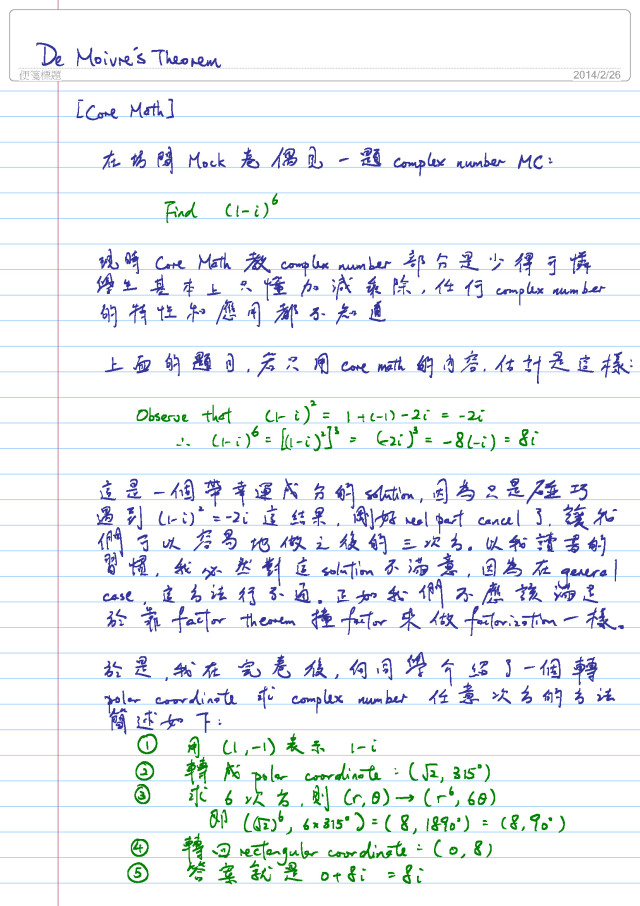 De Moivre's Theorem
便箋標題
2014/2/26
[Core Math]
在坊間 Mock 卷偶見一題 complex number MC:
Find (1-i)^6
現時 Core Math 教 complex number 部分是少得可憐
學生基本上只懂加減乘除, 任何 complex number
的特性和應用都不知道
上面的題目, 若只用 core math 的內容, 估計是這樣:
Observe that (1-i)^2 = 1+(-1)-2i = -2i
∴ (1-i)^6 = [(1-i)^2]^3 = (-2i)^3 = -8(-i) = 8i
這是一個帶幸運成分的 solution, 因為只是碰巧
遇到 (1-i)^2 = -2i 這結果, 剛好 real part cancel 了, 讓我
們可以容易地做之後的三次方。以我讀書的
習慣, 我必然對這 solution 不滿意, 因為在 general
case, 這方法行不通。正如我們不應該滿足
於靠 factor theorem 撞 factor 來做 factorization 一樣。
於是, 我在完卷後, 向同學介紹了一個轉
polar coordinate 求 complex number 任意次方的方法
簡述如下:
① 用 (1,-1) 表示 1-i
② 轉成 polar coordinate: (√2, 315°)
③ 求 6 次方, 則 (r,θ) → (r^6, 6θ)
即 ((√2)^6, 6×315°) = (8, 1890°) = (8, 90°)
④ 轉回 rectangular coordinate: (0, 8)
⑤ 答案就是 0+8i = 8i